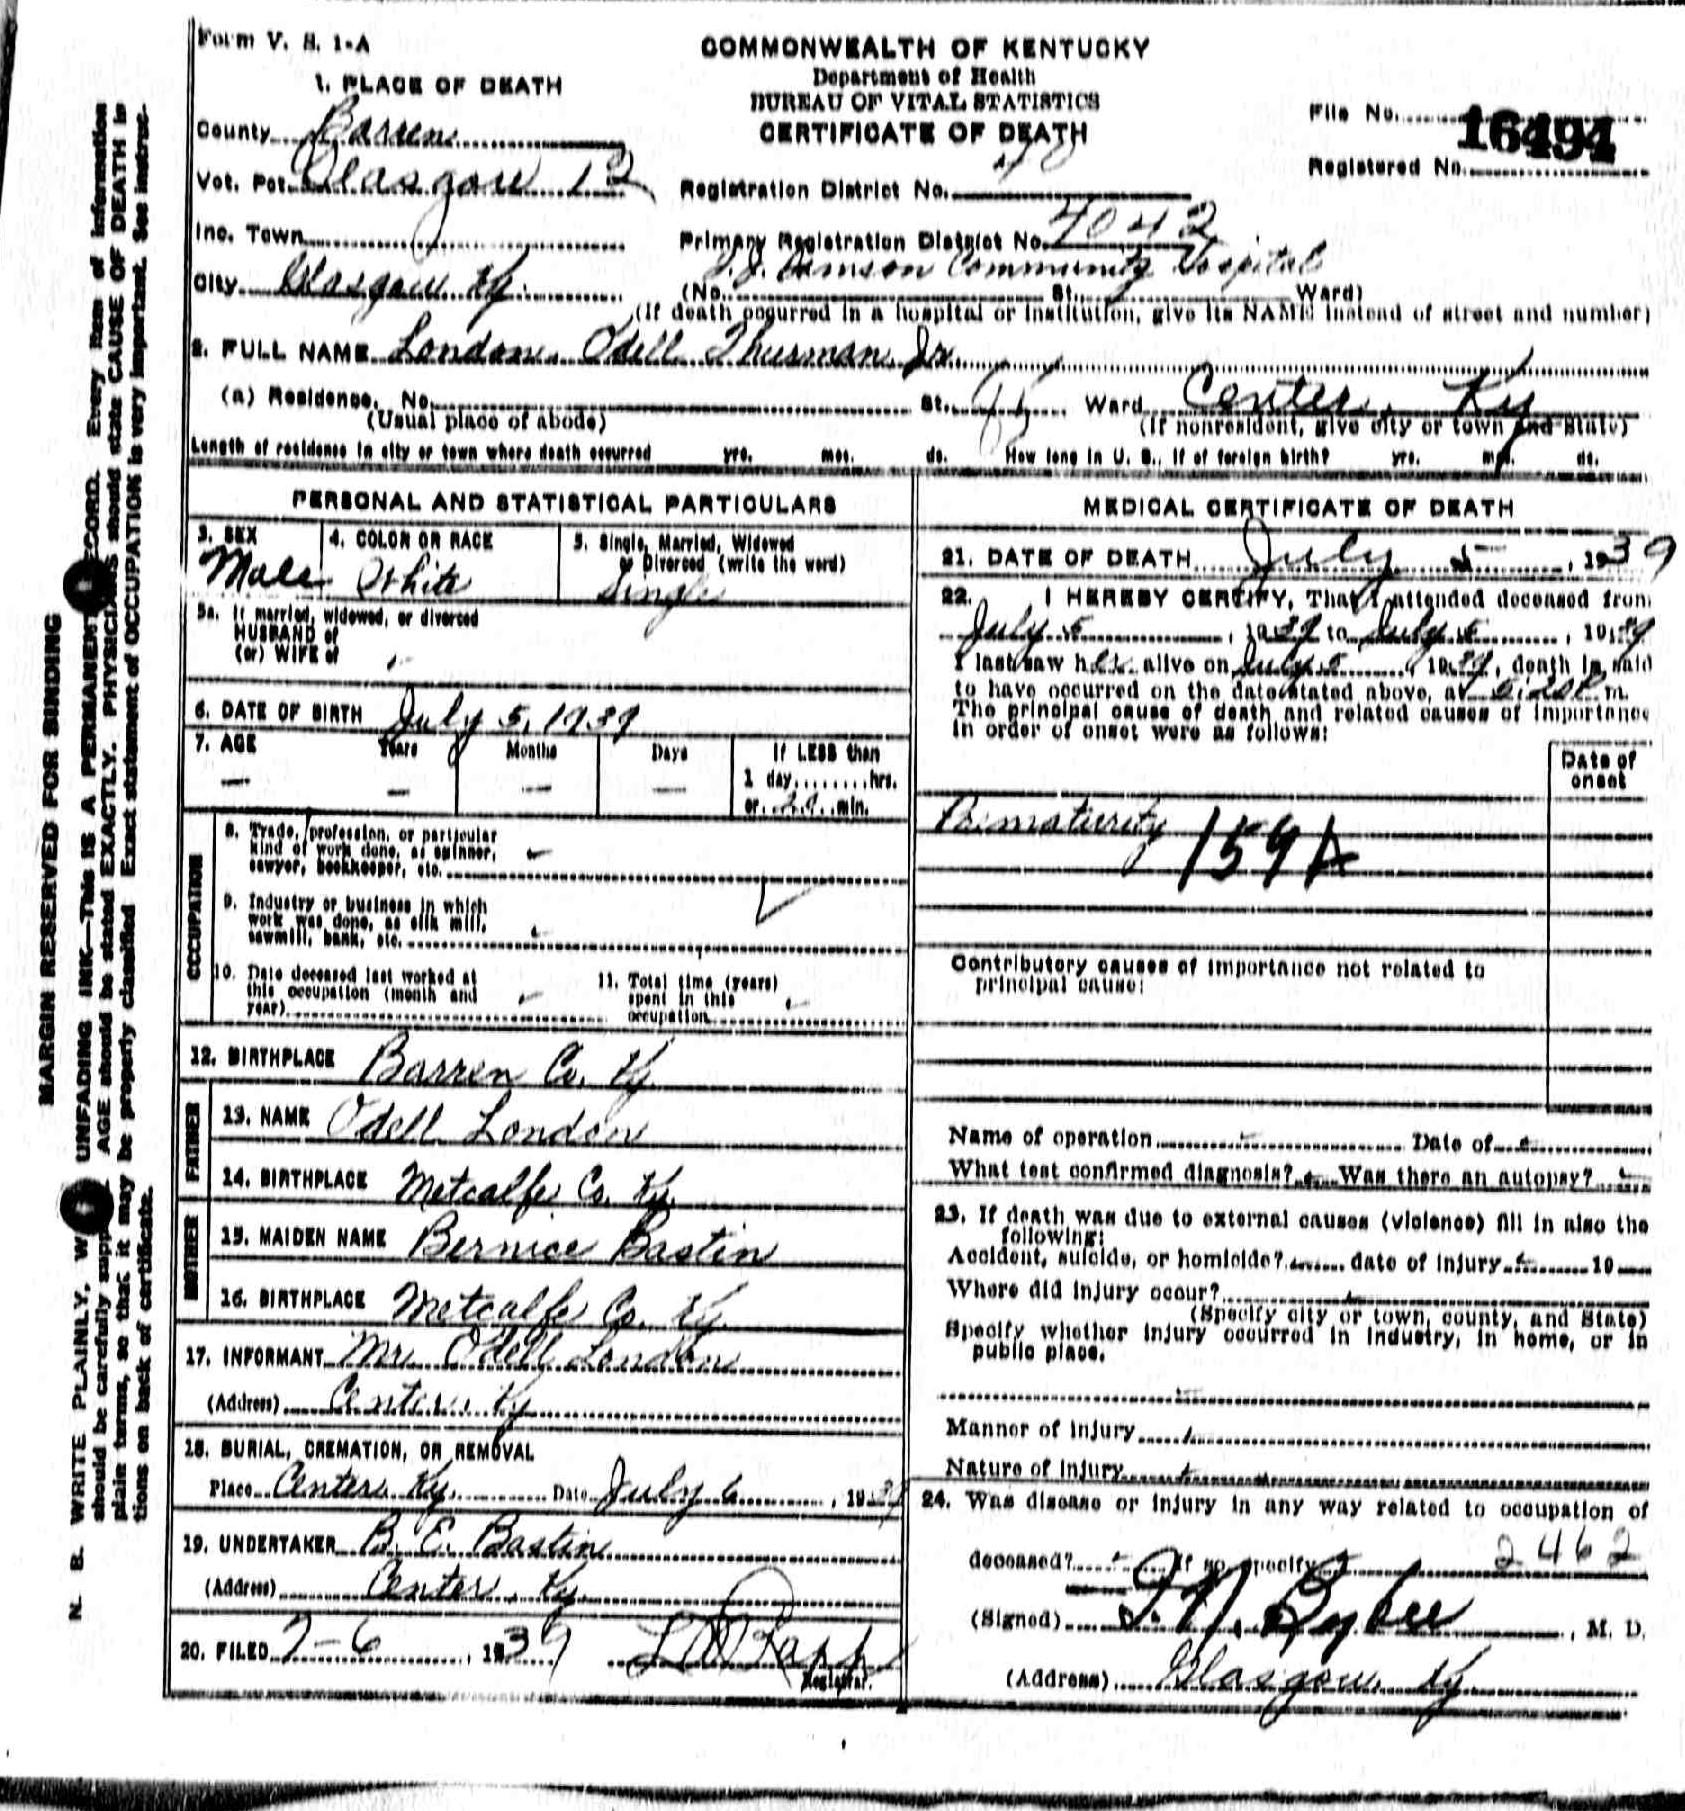 Form V. S. 1-A
COMMONWEALTH OF KENTUCKY
Department of Health
BUREAU OF VITAL STATISTICS
CERTIFICATE OF DEATH
File No. 16494
Registered No.
1. PLACE OF DEATH
County Barren
Vot. Pct. Glasgow 12
Registration District No.
Inc. Town
Primary Registration District No. 4042
City Glasgow Ky.
Community Hospital
(No. St. Ward)
(If death occurred in a hospital or institution, give its NAME instead of street and number)
2. FULL NAME London, Odell Thurman Jr.
(a) Residence. No. St. Ward Center, Ky
(Usual place of abode)
(If nonresident, give city or town and State)
Length of residence in city or town where death occurred yrs. mos. ds. How long in U. S., if of foreign birth? yrs. mos. ds.
PERSONAL AND STATISTICAL PARTICULARS
3. SEX
Male
4. COLOR OR RACE
White
5. Single, Married, Widowed
or Divorced (write the word)
Single
5a. If married, widowed, or divorced
HUSBAND of
(or) WIFE of
6. DATE OF BIRTH July 5, 1939
7. AGE Years Months Days If LESS than
— — — 1 day,........hrs.
or min.
OCCUPATION
8. Trade, profession, or particular
kind of work done, as spinner,
sawyer, bookkeeper, etc.
9. Industry or business in which
work was done, as silk mill,
sawmill, bank, etc.
10. Date deceased last worked at
this occupation (month and
year)
11. Total time (years)
spent in this
occupation
12. BIRTHPLACE Barren Co. Ky.
FATHER
13. NAME Odell London
14. BIRTHPLACE Metcalfe Co. Ky.
MOTHER
15. MAIDEN NAME Bernice Bastin
16. BIRTHPLACE Metcalfe Co. Ky.
17. INFORMANT Mr. Odell London
(Address) Center, Ky
18. BURIAL, CREMATION, OR REMOVAL
Place Center Ky. Date July 6, 1939
19. UNDERTAKER B. E. Bastin
(Address) Center, Ky.
20. FILED 7-6, 1939
Registrar.
MEDICAL CERTIFICATE OF DEATH
21. DATE OF DEATH July 5, 1939
22. I HEREBY CERTIFY, That I attended deceased from
July 5, 1939 to July 5, 1939
I last saw h alive on July 5, 1939, death is said
to have occurred on the date stated above, at m.
The principal cause of death and related causes of importance
in order of onset were as follows:
Date of
onset
Prematurity
159A
Contributory causes of importance not related to
principal cause:
Name of operation Date of
What test confirmed diagnosis? Was there an autopsy?
23. If death was due to external causes (violence) fill in also the
following:
Accident, suicide, or homicide? date of injury 19
Where did injury occur?
(Specify city or town, county, and State)
Specify whether injury occurred in industry, in home, or in
public place.
Manner of injury
Nature of injury
24. Was disease or injury in any way related to occupation of
deceased? If so, specify 2462
(Signed) M. D.
(Address) Glasgow, Ky.
MARGIN RESERVED FOR BINDING
N. B. WRITE PLAINLY, UNFADING INK—THIS IS A PERMANENT RECORD. Every item of information
should be carefully AGE should be stated EXACTLY. PHYSICIANS should state CAUSE OF DEATH in
plain terms, so that it may be properly classified. Exact statement of OCCUPATION is very important. See instruc-
tions on back of certificate.